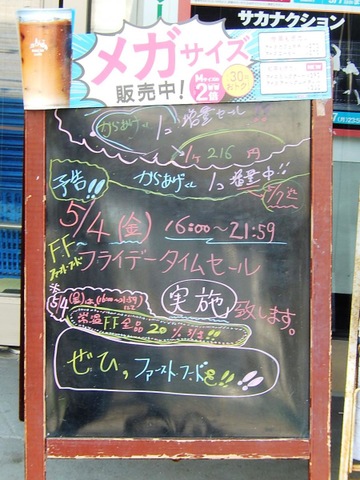 サカナクション
メガサイズ
販売中!
Mサイズの
2倍
30円
おトク
NEW
からあげくん 1コ増量セール!!
1ヶ216円
予告!! からあげくん 1コ増量中!!
5/7迄
5/4(金) 16:00~21:59
F.F~
ファストフード
フライデータイムセール
※5/4(金)は、16:00~21:59迄
実施致します。
常温F.F全品20%引き!!
ぜひ。ファーストフードを!!!!